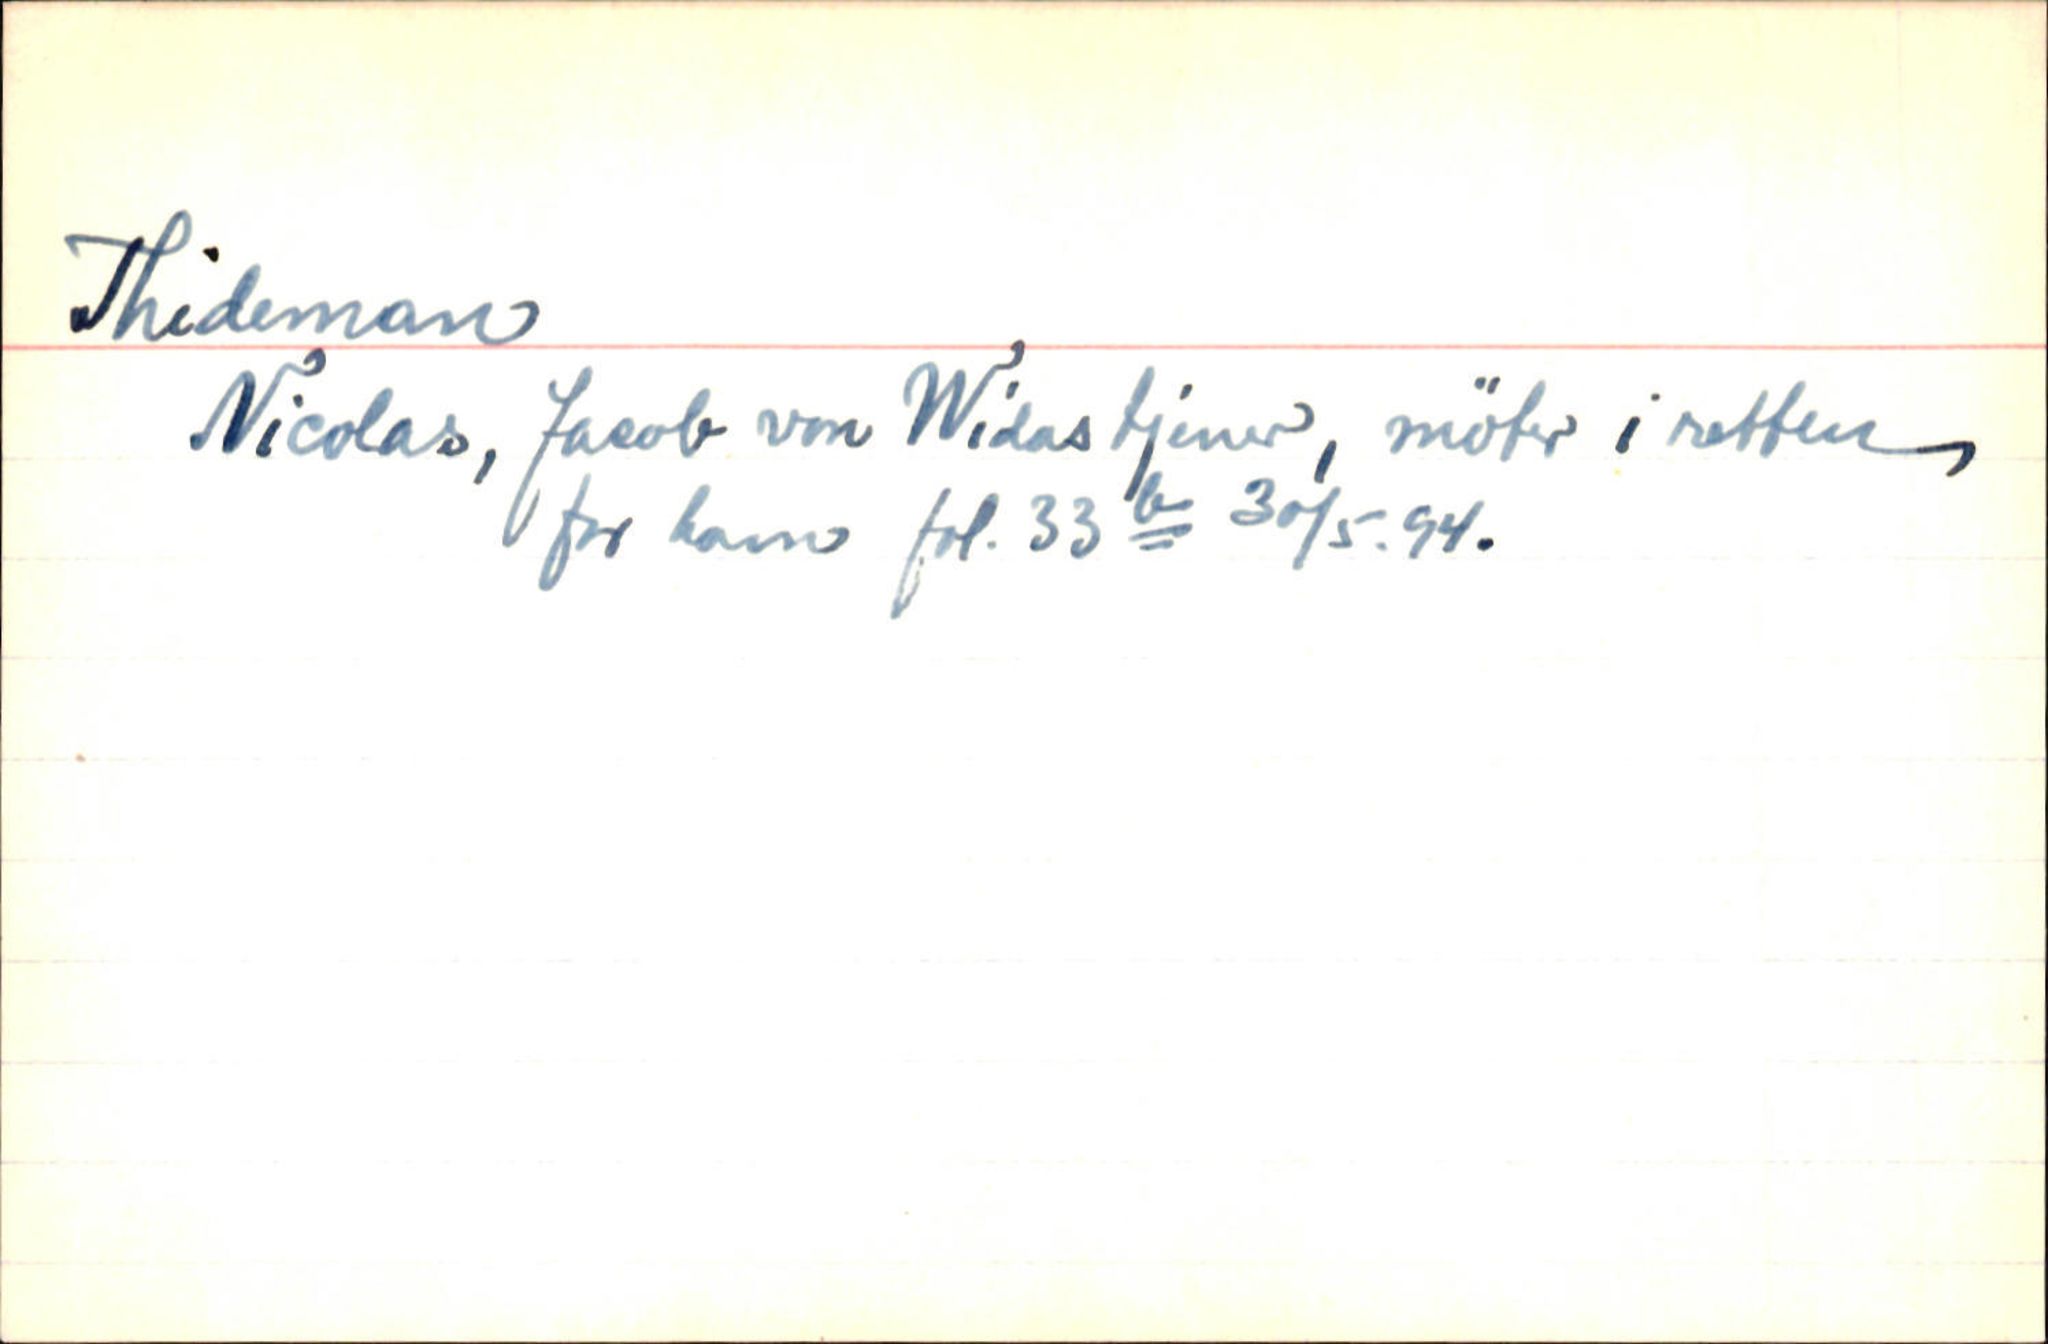 Thideman
Nicolas, Jacob von Widas tjener, möter i retten
for ham fol. 33 b 30/5. 94.